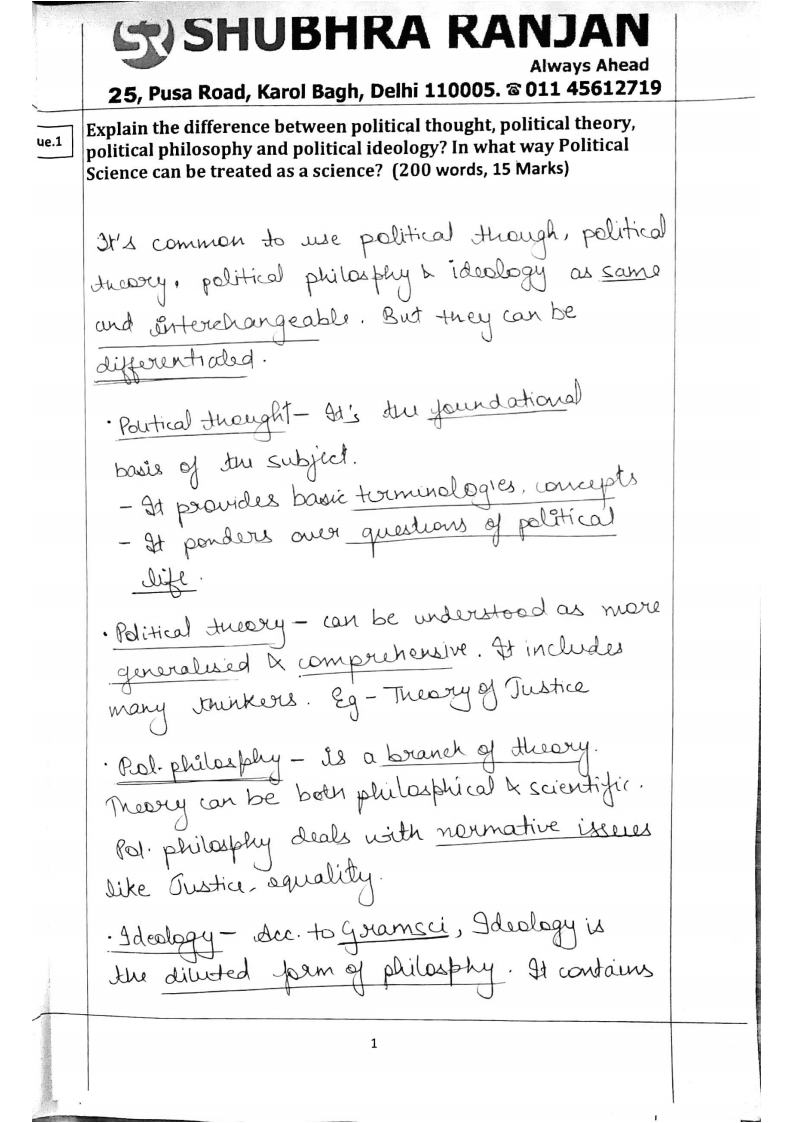 SR SHUBHRA RANJAN
Always Ahead
25, Pusa Road, Karol Bagh, Delhi 110005. ☎ 011 45612719
ue.1
Explain the difference between political thought, political theory,
political philosophy and political ideology? In what way Political
Science can be treated as a science? (200 words, 15 Marks)
It's common to use political though, political
theory, political philosphy & ideology as same
and interchangeable. But they can be
differentiated.
· Political thought - It's the foundational
basis of the subject.
- It provides basic terminologies, concepts
- It ponders over questions of political
life.
· Political theory - can be understood as more
generalised & comprehensive. It includes
many thinkers. Eg - Theory of Justice
· Pol. philosphy - is a branch of theory.
Theory can be both philosphical & scientific.
Pol. philosphy deals with normative issues
like Justice, equality.
· Ideology - Acc. to Gramsci, Ideology is
the diluted form of philosphy. It contains
1